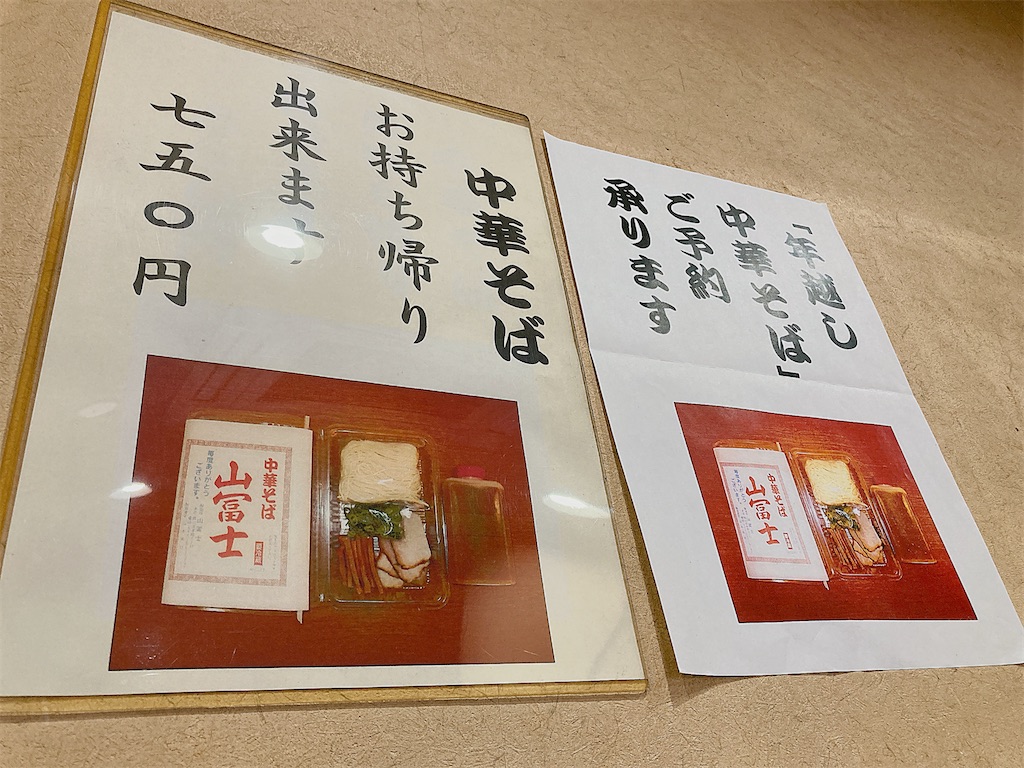 中華そば
お持ち帰り
出来ます
七五〇円
中華そば
山富士
毎度ありがとう
ございます。
「年越し
中華そば」
ご予約
承ります
中華そば
山富士